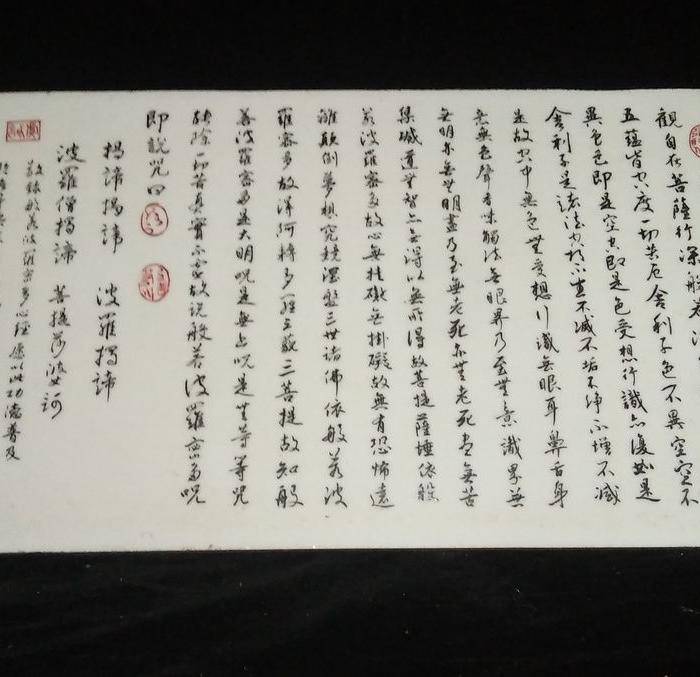 觀自在菩薩行深般若波
五蘊皆空度一切苦厄舍利子色不異空空不
異色色即是空空即是色受想行識亦復如是
舍利子是諸法空相不生不滅不垢不淨不增不減
是故空中無色無受想行識無眼耳鼻舌身
意無色聲香味觸法無眼界乃至無意識界無
無明亦無無明盡乃至無老死亦無老死盡無苦
集滅道無智亦無得以無所得故菩提薩埵依般
若波羅蜜多故心無挂礙無掛礙故無有恐怖遠
離顛倒夢想究竟涅槃三世諸佛依般若波
羅蜜多故得阿耨多羅三藐三菩提故知般
若波羅蜜多是大明呪是無上呪是無等等咒
能除一切苦真實不虛故說般若波羅蜜多呪
即說咒曰
揭諦揭諦 波羅揭諦
波羅僧揭諦 菩提莎婆訶
敬錄般若波羅蜜多心經 願以此功德普及